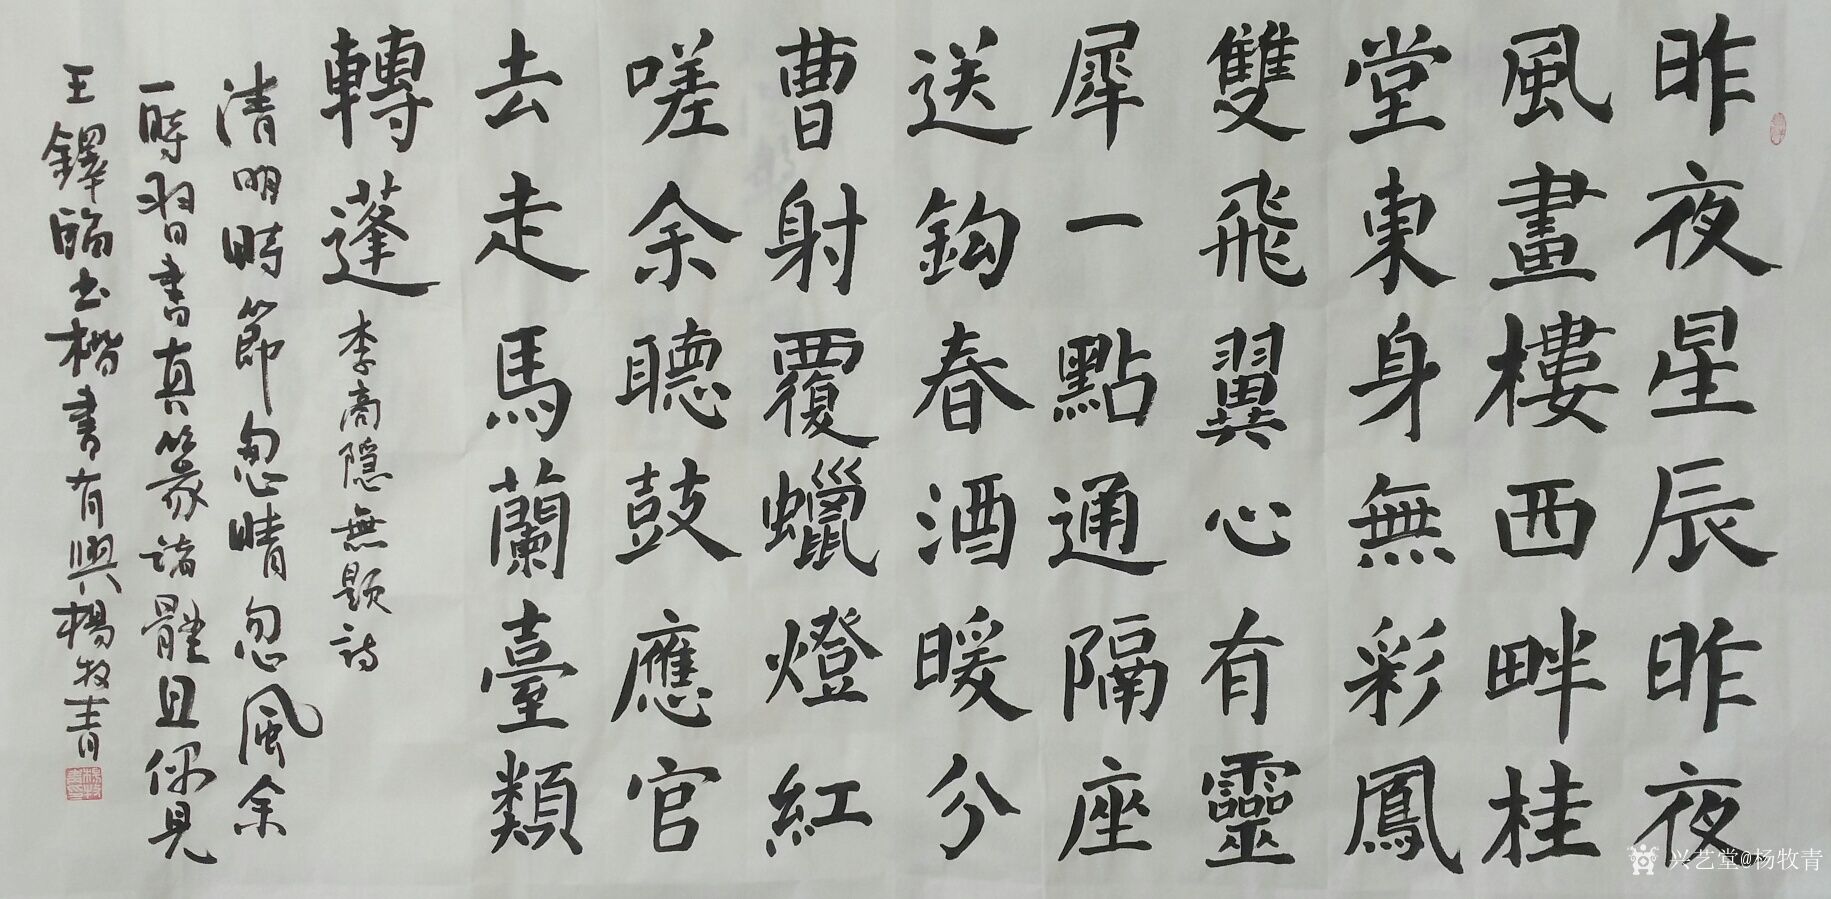 昨夜星辰昨夜
風畫樓西畔桂
堂東身無彩鳳
雙飛翼心有靈
犀一點通隔座
送鈎春酒暖分
曹射覆蠟燈紅
嗟余聽鼓應官
去走馬蘭臺類
轉蓬
李商隱無題詩
清明時節忽晴忽風余
一時習書真篆諸體且偶見
王鐸臨書楷書有興楊牧青
兴艺堂@杨牧青